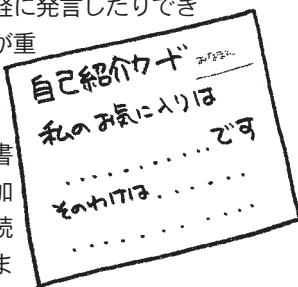 軽に発言したりでき
が重
書
加
続
ま
自己紹介カード おなまえ
私のお気に入りは
..........です
そのわけは......
..........